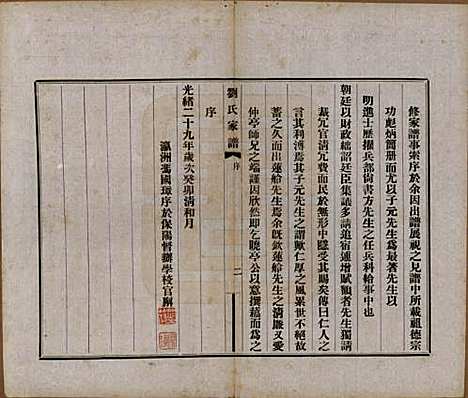 修家譜事索序於余因出譜展視之見譜中所載祖德宗
功彪炳簡册而尤以子元先生為最著先生以
明進士歷擢兵部尚書方先生之任兵科給事中也
朝廷以財政絀詔廷臣集議多請追宿逋增賦稅者先生獨請
裁冗官清冗費而民於無形中隱受其賜矣傳曰仁人之
言其利溥焉其子元先生之謂歟仁厚之風累世不絕故
蓄之久而出蓮舲先生焉余既欽蓮舲先生之清廉又愛
仲亭師兄之端謹因欣然即左曉亭公以意撰藉而為之
序
光緒二十九年歲次癸卯清和月
瀛洲馮國璋序於保陽督辦學校官廨
劉氏家譜
序
二